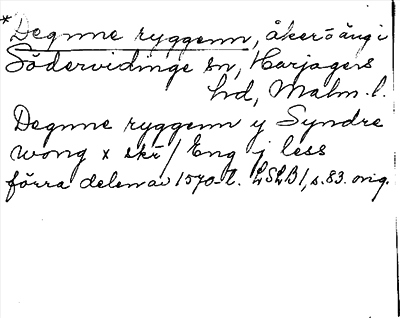 *Degnne ryggenn, åker o äng i
Södervidinge sn, Harjagers
hd, Malm. l.
Degnne ryggenn y Syndre
wong x skr / Eng j less
förra delen av 1570-t. LSLB 1, s. 83. orig.